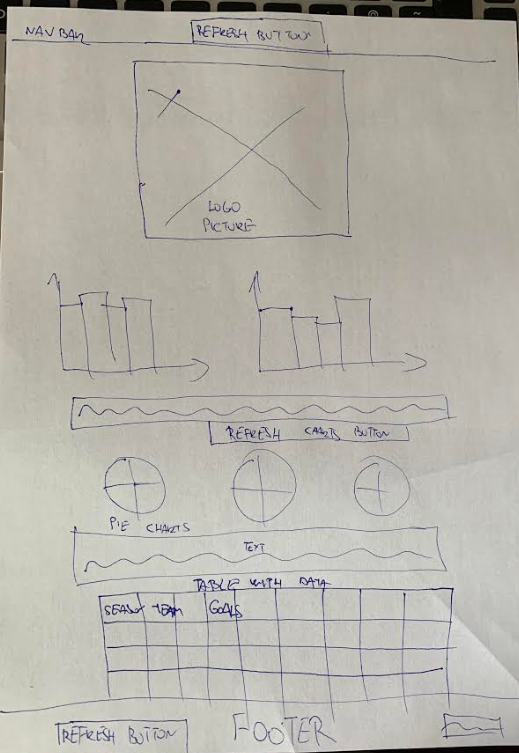 NAV BAR
REFRESH BUTTON
LOGO
PICTURE
REFRESH CHARTS BUTTON
PIE CHARTS
TEXT
TABLE WITH DATA
TEAM GOALS
REFRESH BUTTON FOOTER